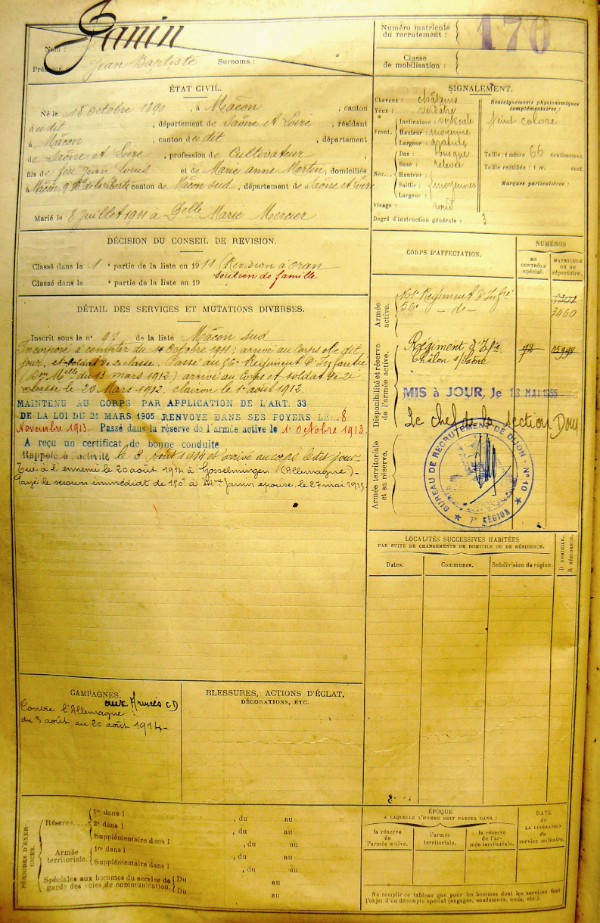 Janin
Nom :
Prénoms : Jean Baptiste Surnoms :
Numéro matricule
du recrutement :
170
Classe
de mobilisation :
ÉTAT CIVIL.
Né le 18 Octobre 1890, à Mâcon, canton
dudit, département de Saône et Loire, résidant
à Mâcon, canton dudit, département
de Saône et Loire, profession de Cultivateur
fils de feu Jean Louis et de Marie Anne Martin, domiciliés
à Mâcon, canton de Mâcon Sud, département de Saône et Loire
Marié le 8 juillet 1911 à Delle Marie Mercier
SIGNALEMENT.
Cheveux : châtains
Yeux :
Front. Inclinaison :
Hauteur : moyenne
Largeur : grande
Nez. Dos : busqué
Base : relevée
Hauteur :
Saillie : moyennes
Largeur :
Visage : rond
Renseignements physionomiques
complémentaires :
Teint coloré
Taille : 1 mètre 66 centimètres.
Taille rectifiée : 1 m. cent.
Marques particulières :
Degré d'instruction générale : 3
DÉCISION DU CONSEIL DE REVISION.
Classé dans la 1 e partie de la liste en 1911 (Révision d'Oran
Classé dans la e partie de la liste en 19 soutien de famille
DÉTAIL DES SERVICES ET MUTATIONS DIVERSES.
Inscrit sous le n° 92 de Mâcon Sud
Incorporé à compter du Octobre 1911, arrivé au corps ledit
jour, et soldat de 2e classe. Passé au 56e Régiment d'Infanterie
du 13 mars 1912) arrivé au corps et soldat de 2e
classe le 20 Mars 1912. Clairon le 1er août 1912
MAINTENU AU CORPS PAR APPLICATION DE L'ART. 33
DE LA LOI DU 21 MARS 1905 RENVOYÉ DANS SES FOYERS LE 8
Novembre 1913. Passé dans la réserve de l'armée active le 1er Octobre 1913.
A reçu un certificat de bonne conduite
Rappelé à l'activité le 3 août 1914 et arrivé au corps ledit jour.
Tué à l'ennemi le 20 août 1914 à Gosselmingen (Allemagne).
Payé le secours immédiat de 150 f à Mme Janin épouse, le 27 mai 1915.
CORPS D'AFFECTATION.
NUMÉROS
AU
CONTRÔLE
SPÉCIAL.
MATRICULE
OU AU
RÉPERTOIRE.
Armée
active.
Régiment d'Infie
56e - de -
3060
Disponibilité et réserve
de l'armée active.
Régiment d'Infie
Châlon s/Saône
MIS à JOUR, le 18 MAI 1955
Le chef de la section Dom
Armée territoriale
et sa réserve.
BUREAU DE RECRUTEMENT DE DIJON - N° 10
7e RÉGION
LOCALITÉS SUCCESSIVES HABITÉES
PAR SUITE DE CHANGEMENTS DE DOMICILE OU DE RÉSIDENCE.
Dates.
Communes.
Subdivision de région.
D. DOMICILE.
R. RÉSIDENCE.
CAMPAGNES.
aux Armées CD
Contre l'Allemagne
du 3 août au 20 août 1914
BLESSURES, ACTIONS D'ÉCLAT,
DÉCORATIONS, ETC.
PÉRIODES D'EXERCICES.
Réserve. 1re dans l , du au
2e dans l , du au
Supplémentaire dans l , du au
Armée
territoriale. 1re dans l , du au
Supplémentaire dans l , du au
Spéciales aux hommes du service de
garde des voies de communication. Du au
Du au
ÉPOQUE
À LAQUELLE L'HOMME DOIT PASSER DANS :
la réserve
de l'armée active.
l'armée
territoriale.
la réserve
de l'armée
territoriale.
DATE
DE LA LIBÉRATION
du
service militaire.
Ne remplir ce tableau que pour les hommes dont les services font
l'objet d'un décompte spécial (engagés, condamnés, omis, etc.).